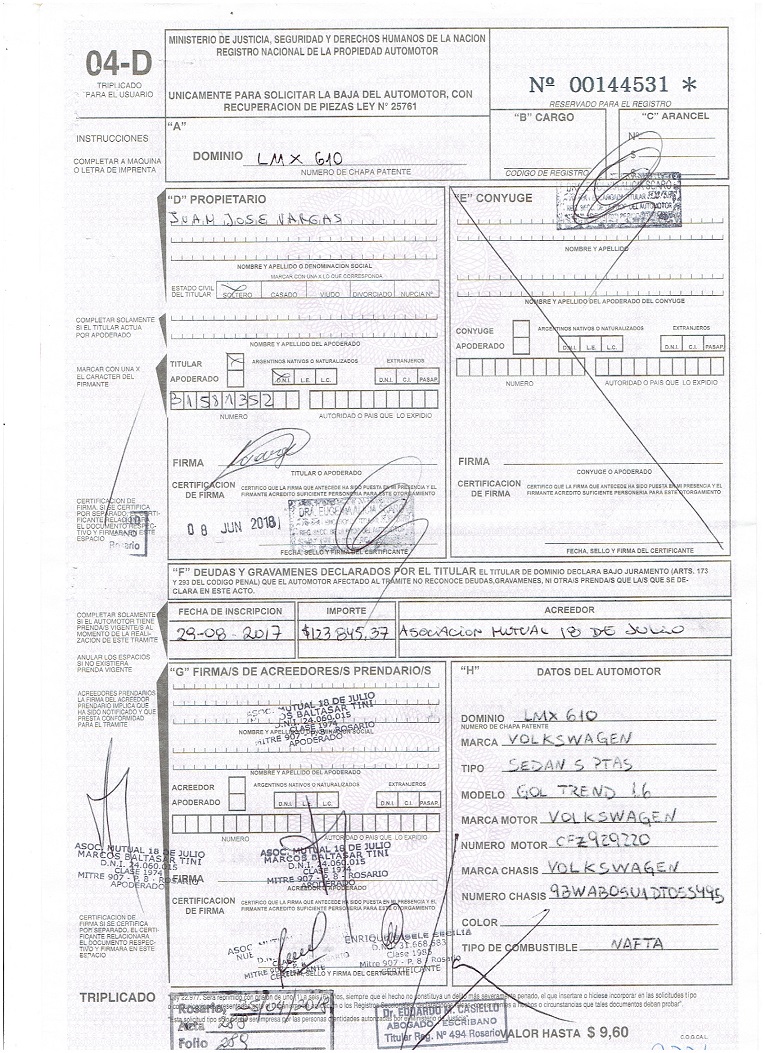 MINISTERIO DE JUSTICIA, SEGURIDAD Y DERECHOS HUMANOS DE LA NACION
REGISTRO NACIONAL DE LA PROPIEDAD AUTOMOTOR
04-D
TRIPLICADO
PARA EL USUARIO
UNICAMENTE PARA SOLICITAR LA BAJA DEL AUTOMOTOR, CON
RECUPERACION DE PIEZAS LEY N° 25761
Nº 00144531 *
RESERVADO PARA EL REGISTRO
"B" CARGO
"C" ARANCEL
Nº
$
$
CODIGO DE REGISTRO
INSTRUCCIONES
COMPLETAR A MAQUINA
O LETRA DE IMPRENTA
"A"
DOMINIO LMX 610
NUMERO DE CHAPA PATENTE
"D" PROPIETARIO
JUAN JOSE VARGAS
NOMBRE Y APELLIDO O DENOMINACION SOCIAL
MARCAR CON UNA X LO QUE CORRESPONDA
ESTADO CIVIL
DEL TITULAR
SOLTERO CASADO VIUDO DIVORCIADO NUPCIA Nº
COMPLETAR SOLAMENTE
SI EL TITULAR ACTUA
POR APODERADO
NOMBRE Y APELLIDO DEL APODERADO
MARCAR CON UNA X
EL CARACTER DEL
FIRMANTE
TITULAR
APODERADO
ARGENTINOS NATIVOS O NATURALIZADOS
EXTRANJEROS
D.N.I. L.E. L.C.
D.N.I. C.I. PASAP.
31581352
NUMERO
AUTORIDAD O PAIS QUE LO EXPIDIO
FIRMA
TITULAR O APODERADO
CERTIFICACION
DE FIRMA
CERTIFICO QUE LA FIRMA QUE ANTECEDE HA SIDO PUESTA EN MI PRESENCIA Y EL
FIRMANTE ACREDITO SUFICIENTE PERSONERIA PARA ESTE OTORGAMIENTO
08 JUN 2018
DRA. EUGENIA
FECHA, SELLO Y FIRMA DEL CERTIFICANTE
CERTIFICACION DE
FIRMA. SI SE CERTIFICA
POR SEPARADO, EL CERTI-
FICANTE RELACIO
EL DOCUMENTO RESPEC-
TIVO Y FIRMARA EN ESTE
ESPACIO
Rosario
"E" CONYUGE
NOMBRE Y APELLIDO
NOMBRE Y APELLIDO DEL APODERADO DEL CONYUGE
CONYUGE
APODERADO
ARGENTINOS NATIVOS O NATURALIZADOS
EXTRANJEROS
D.N.I. L.E. L.C.
D.N.I. C.I. PASAP.
NUMERO
AUTORIDAD O PAIS QUE LO EXPIDIO
FIRMA
CONYUGE O APODERADO
CERTIFICACION
DE FIRMA
CERTIFICO QUE LA FIRMA QUE ANTECEDE HA SIDO PUESTA EN MI PRESENCIA Y EL
FIRMANTE ACREDITO SUFICIENTE PERSONERIA PARA ESTE OTORGAMIENTO
FECHA, SELLO Y FIRMA DEL CERTIFICANTE
"F" DEUDAS Y GRAVAMENES DECLARADOS POR EL TITULAR EL TITULAR DE DOMINIO DECLARA BAJO JURAMENTO (ARTS. 173
Y 293 DEL CODIGO PENAL) QUE EL AUTOMOTOR AFECTADO AL TRAMITE NO RECONOCE DEUDAS, GRAVAMENES, NI OTRA/S PRENDA/S QUE LA/S QUE SE DE-
CLARA EN ESTE ACTO.
COMPLETAR SOLAMENTE
SI EL AUTOMOTOR TIENE
PRENDA/S VIGENTE/S AL
MOMENTO DE LA REALI-
ZACION DE ESTE TRAMITE
ANULAR LOS ESPACIOS
SI NO EXISTIERA
PRENDA VIGENTE
FECHA DE INSCRIPCION
IMPORTE
ACREEDOR
29-08-2017
$123.845,37
ASOCIACION MUTUAL 18 DE JULIO
"G" FIRMA/S DE ACREEDORES/S PRENDARIO/S
ACREEDORES PRENDARIOS
LA FIRMA DEL ACREEDOR
PRENDARIO IMPLICA QUE
HA SIDO NOTIFICADO Y QUE
PRESTA CONFORMIDAD
PARA EL TRAMITE
ASOC. MUTUAL 18 DE JULIO
MARCOS BALTASAR TINI
D.N.I. 24.060.015
CLASE 1974
MITRE 907 - P. 8 - ROSARIO
APODERADO
NOMBRE Y APELLIDO O DENOMINACION SOCIAL
NOMBRE Y APELLIDO DEL APODERADO
ACREEDOR
APODERADO
ARGENTINOS NATIVOS O NATURALIZADOS
EXTRANJEROS
D.N.I. L.E. L.C.
D.N.I. C.I. PASAP.
NUMERO
AUTORIDAD O PAIS QUE LO EXPIDIO
ASOC. MUTUAL 18 DE JULIO
MARCOS BALTASAR TINI
D.N.I. 24.060.015
CLASE 1974
MITRE 907 - P. 8 - ROSARIO
APODERADO
ASOC. MUTUAL 18 DE JULIO
MARCOS BALTASAR TINI
D.N.I. 24.060.015
CLASE 1974
MITRE 907 - P. 8 - ROSARIO
APODERADO
FIRMA
ACREEDOR O APODERADO
CERTIFICACION
DE FIRMA
CERTIFICO QUE LA FIRMA QUE ANTECEDE HA SIDO PUESTA EN MI PRESENCIA Y EL
FIRMANTE ACREDITO SUFICIENTE PERSONERIA PARA ESTE OTORGAMIENTO
CERTIFICACION DE
FIRMA SI SE CERTIFICA
POR SEPARADO, EL CERTI-
FICANTE RELACIONARA
EL DOCUMENTO RESPEC-
TIVO Y FIRMARA EN ESTE
ESPACIO
FECHA, SELLO Y FIRMA DEL CERTIFICANTE
"H" DATOS DEL AUTOMOTOR
DOMINIO LMX 610
NUMERO DE CHAPA PATENTE
MARCA VOLKSWAGEN
TIPO SEDAN 5 PTAS
MODELO GOL TREND 1.6
MARCA MOTOR VOLKSWAGEN
NUMERO MOTOR CFZ929220
MARCA CHASIS VOLKSWAGEN
NUMERO CHASIS 9BWAB05U1DT055495
COLOR
TIPO DE COMBUSTIBLE NAFTA
TRIPLICADO
Rosario,
Acta 289
Folio 289
Dr. EDUARDO M. CASIELLO
ABOGADO ESCRIBANO
Titular Reg. Nº 494 Rosario
VALOR HASTA $ 9,60